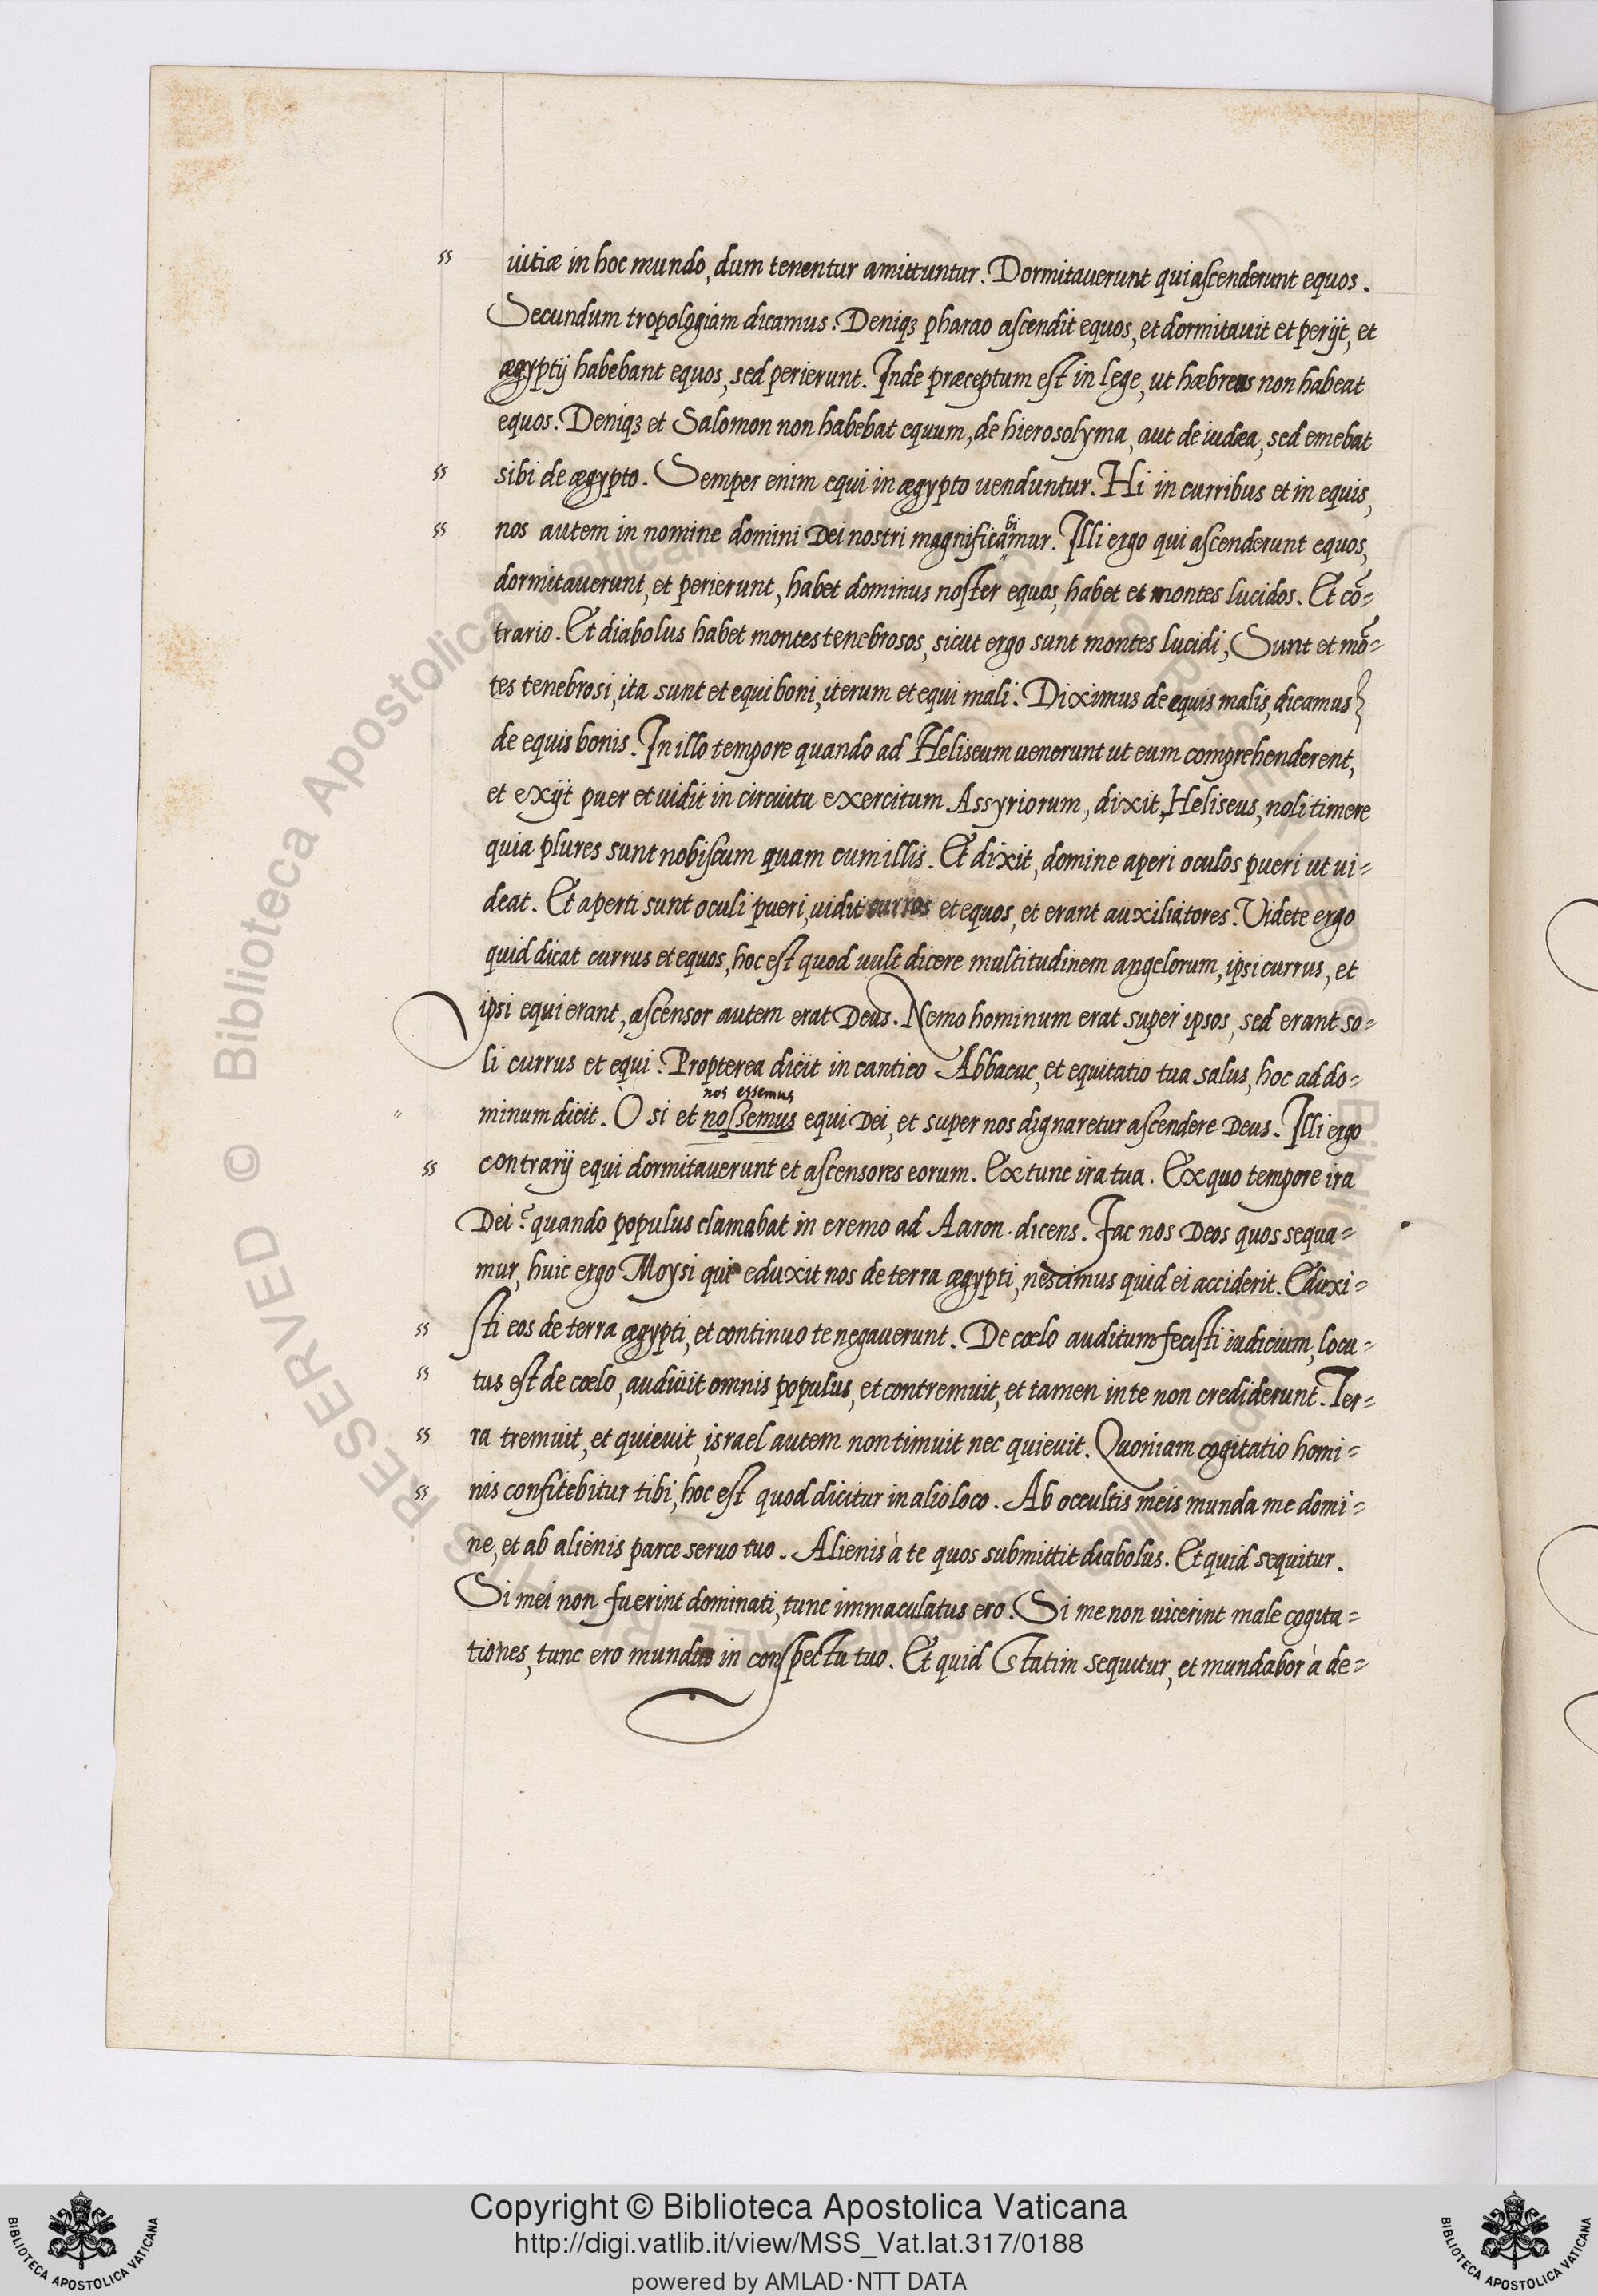 uitiæ in hoc mundo, dum tenentur amittuntur. Dormitauerunt qui ascenderunt equos.
Secundum tropologiam dicamus. Deniqȝ pharao ascendit equos, et dormitauit et perijt, et
ægyptij habebant equos, sed perierunt. Inde præceptum est in lege, ut hæbreus non habeat
equos. Deniqȝ et Salomon non habebat equum, de hierosolyma, aut de iudæa, sed emebat
sibi de ægypto. Semper enim equi in ægypto uenduntur. Hi in curribus et in equis,
nos autem in nomine domini Dei nostri magnificabimur. Illi ergo qui ascenderunt equos,
dormitauerunt, et perierunt, habet dominus noster equos, habet et montes lucidos. Et cō=
trario. Et diabolus habet montes tenebrosos, sicut ergo sunt montes lucidi, Sunt et mō=
tes tenebrosi, ita sunt et equi boni, iterum et equi mali. Diximus de equis malis, dicamus
de equis bonis. In illo tempore quando ad Heliseum uenerunt ut eum comprehenderent,
et exijt puer et uidit in circuitu exercitum Assyriorum, dixit, Heliseus, noli timere
quia plures sunt nobiscum quam cum illis. Et dixit, domine aperi oculos pueri ut ui=
deat. Et aperti sunt oculi pueri, uidit currus et equos, et erant auxiliatores. Videte ergo
quid dicat currus et equos, hoc est quod uult dicere multitudinem angelorum, ipsi currus, et
ipsi equi erant, ascensor autem erat Deus. Nemo hominum erat super ipsos, sed erant so=
li currus et equi. Propterea dicit in cantico Abbacuc, et equitatio tua salus, hoc ad do=
nos essemus
minum dicit. O si et nossemus equi Dei, et super nos dignaretur ascendere Deus. Illi ergo
contrarij equi dormitauerunt et ascensores eorum. Ex tunc ira tua. Ex quo tempore ira
Dei? quando populus clamabat in eremo ad Aaron. dicens. Fac nos Deos quos sequa=
mur, huic ergo Moysi qui eduxit nos de terra ægypti, nescimus quid ei acciderit. Eduxi=
sti eos de terra ægypti, et continuo te negauerunt. De cœlo auditum fecisti iudicium, locu=
tus est de cœlo, audiuit omnis populus, et contremuit, et tamen in te non crediderunt. Ter=
ra tremuit, et quieuit, israel autem non timuit nec quieuit. Quoniam cogitatio homi=
nis confitebitur tibi, hoc est quod dicitur in alio loco. Ab occultis meis munda me domi=
ne, et ab alienis parce seruo tuo. Alienis à te quos submittit diabolus. Et quid sequitur.
Si mei non fuerint dominati, tunc immaculatus ero. Si me non uicerint male cogita=
tiones, tunc ero mundus in conspectu tuo. Et quid statim sequitur, et mundabor à de=
© Biblioteca Apostolica Vaticana
RESERVED
Copyright © Biblioteca Apostolica Vaticana
http://digi.vatlib.it/view/MSS_Vat.lat.317/0188
powered by AMLAD·NTT DATA
BIBLIOTECA APOSTOLICA VATICANA
BIBLIOTECA APOSTOLICA VATICANA